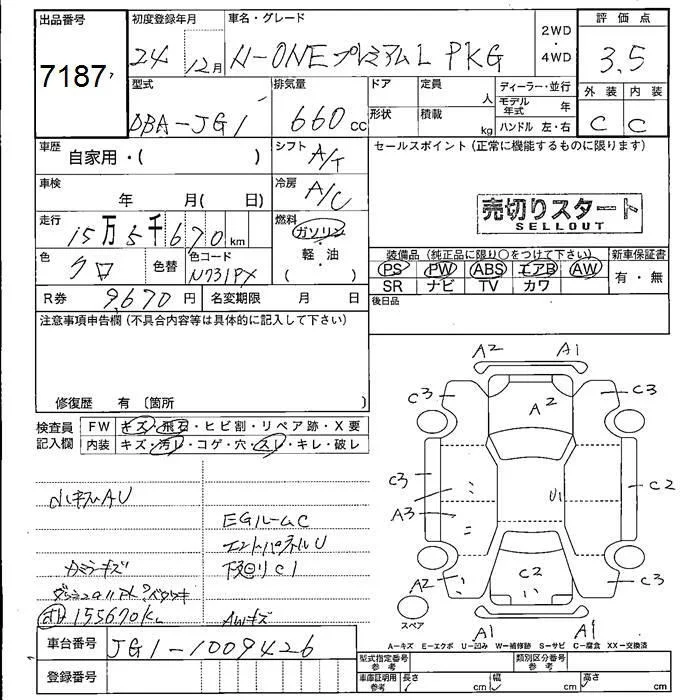 出品番号 初度登録年月 車名・グレード 2WD ・ 4WD 評価点
7187 24 12月 N-ONE プレミアム L PKG 3.5
型式 排気量 ドア 定員 人 ディーラー・並行 外装 内装
DBA-JG1 660cc 形状 積載 kg モデル年式 年 C C
ハンドル 左・右
車歴 自家用・( ) シフト A/T セールスポイント (正常に機能するものに限ります)
車検 年 月( 日) 冷房 A/C
売切りスタート
SELLOUT
走行 15万5千670km 燃料 ガソリン・軽・油 ( )
色 クロ 色替 色コード N731PX
装備品 (純正品に限り○をつけて下さい) 新車保証書
PS PW ABS エアB AW 有・無
SR ナビ TV カワ
R券 9,670円 名変期限 月 日 後日品
注意事項申告欄 (不具合内容等は具体的に記入して下さい)
修復歴 有 〔箇所 〕
検査員記入欄 FW キズ・飛石・ヒビ割・リペア跡・X要
内装 キズ・汚レ・コゲ・穴・スレ・キレ・破レ
A2 A1
C3 A2 C3
C3 U1 C2
A3
A2 C2 C3
A1 A1
スペア
EGルームC
下廻りC1
155670K
AWキズ
A-キズ E-エクボ U-凹み W-補修跡 S-サビ C-腐食 XX-交換済
車台番号 JG1-1009426
型式指定番号 参考 類別区分番号 参考
登録番号
車庫証明用 参考 長さ cm 幅 cm 高さ cm